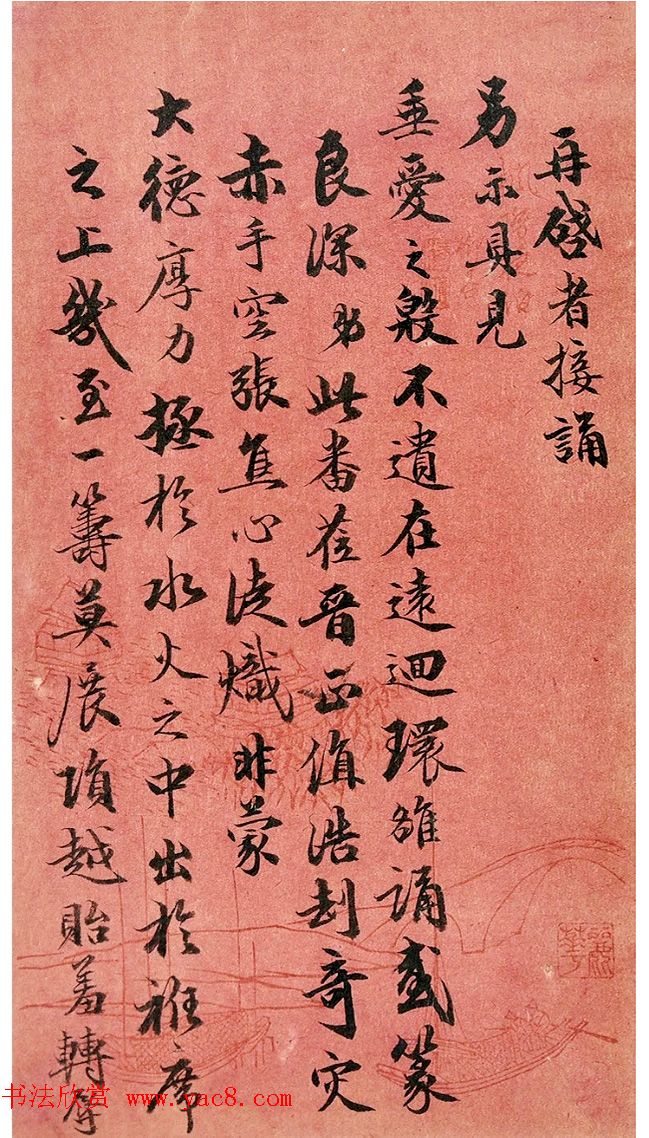 再啓者接誦
另示具見
垂愛之殷不遺在遠迴環雒誦感篆
良深弟此番蒞晉正值浩刦奇灾
赤手空張焦心徒熾非蒙
大德厚力拯於水火之中出於袵席
之上幾至一籌莫展隕越貽羞轉辱
书法欣赏 www.yac8.com